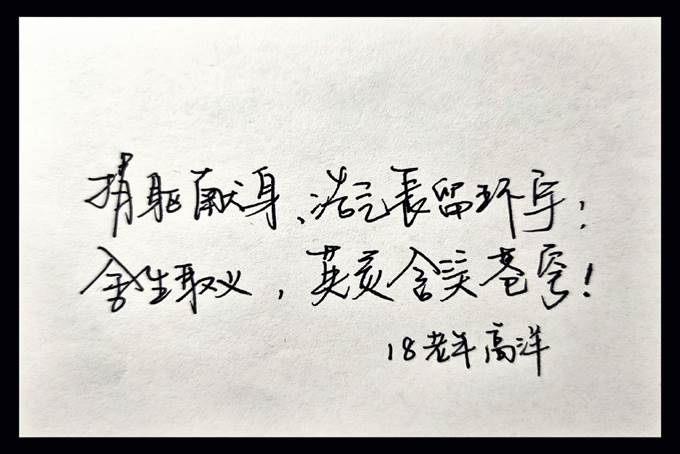 捐躯献身,浩气长留环宇;
舍生取义,英灵含笑苍穹!
18老年高洋